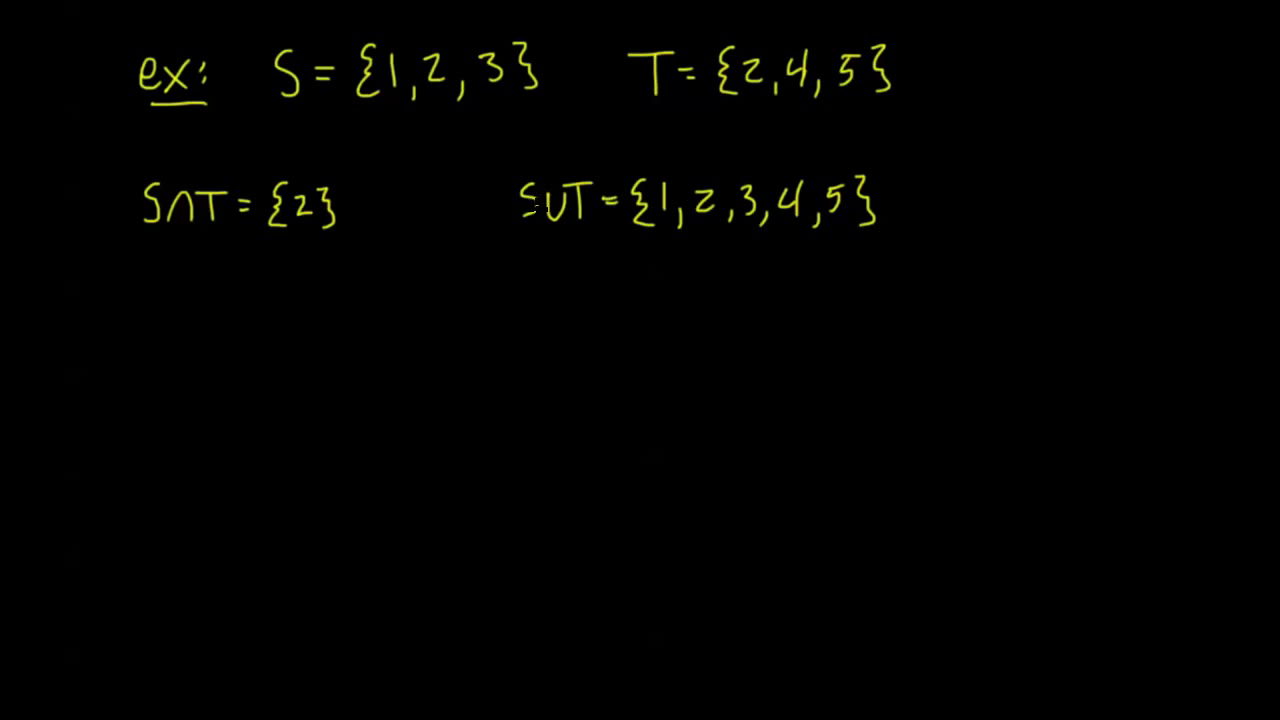 ex: S = {1, 2, 3} T = {2, 4, 5}
S∩T = {2} S∪T = {1, 2, 3, 4, 5}